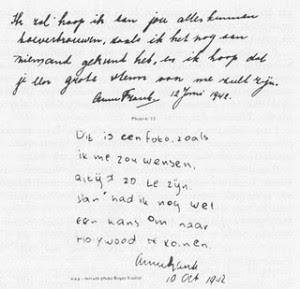 Ik zal hoop ik aan jou alles kunnen
toevertrouwen, zoals ik het nog aan
niemand gekund heb, en ik hoop dat
je een grote steun voor me zult zijn.
Anne Frank. 12 Juni 1942.
Dit is een foto, zoals
ik me zou wensen,
altijd zo te zijn.
Dan had ik nog wel
een kans om naar
Holywood te komen.
Anne Frank
10 Oct 1942